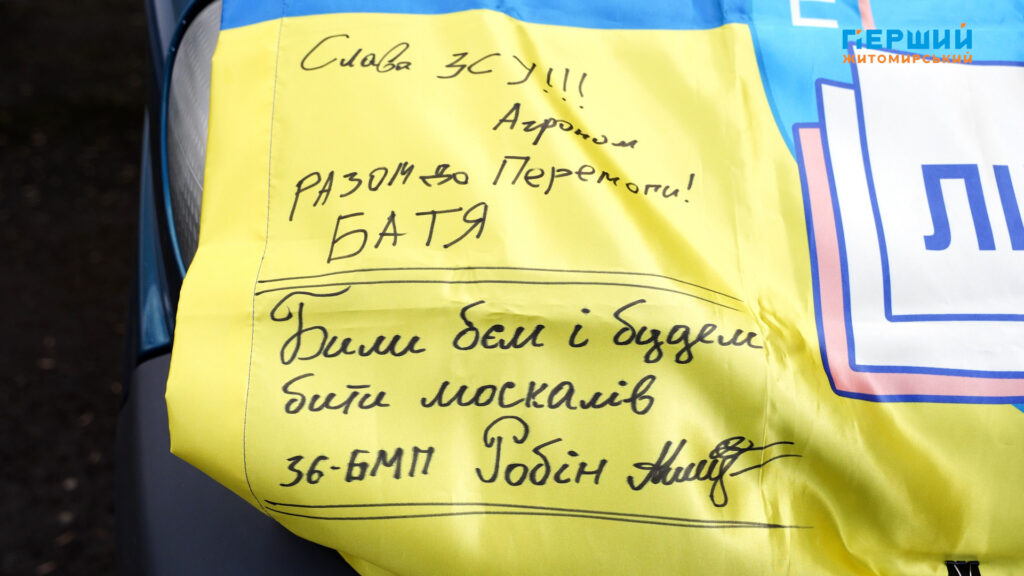 ПЕРШИЙ
ЖИТОМИРСЬКИЙ
Слава ЗСУ!!!
Агроном
РАЗОМ до Перемоги!
БАТЯ
Били бєм і будем
бити москалів
36-БМП Робін
ЛИ